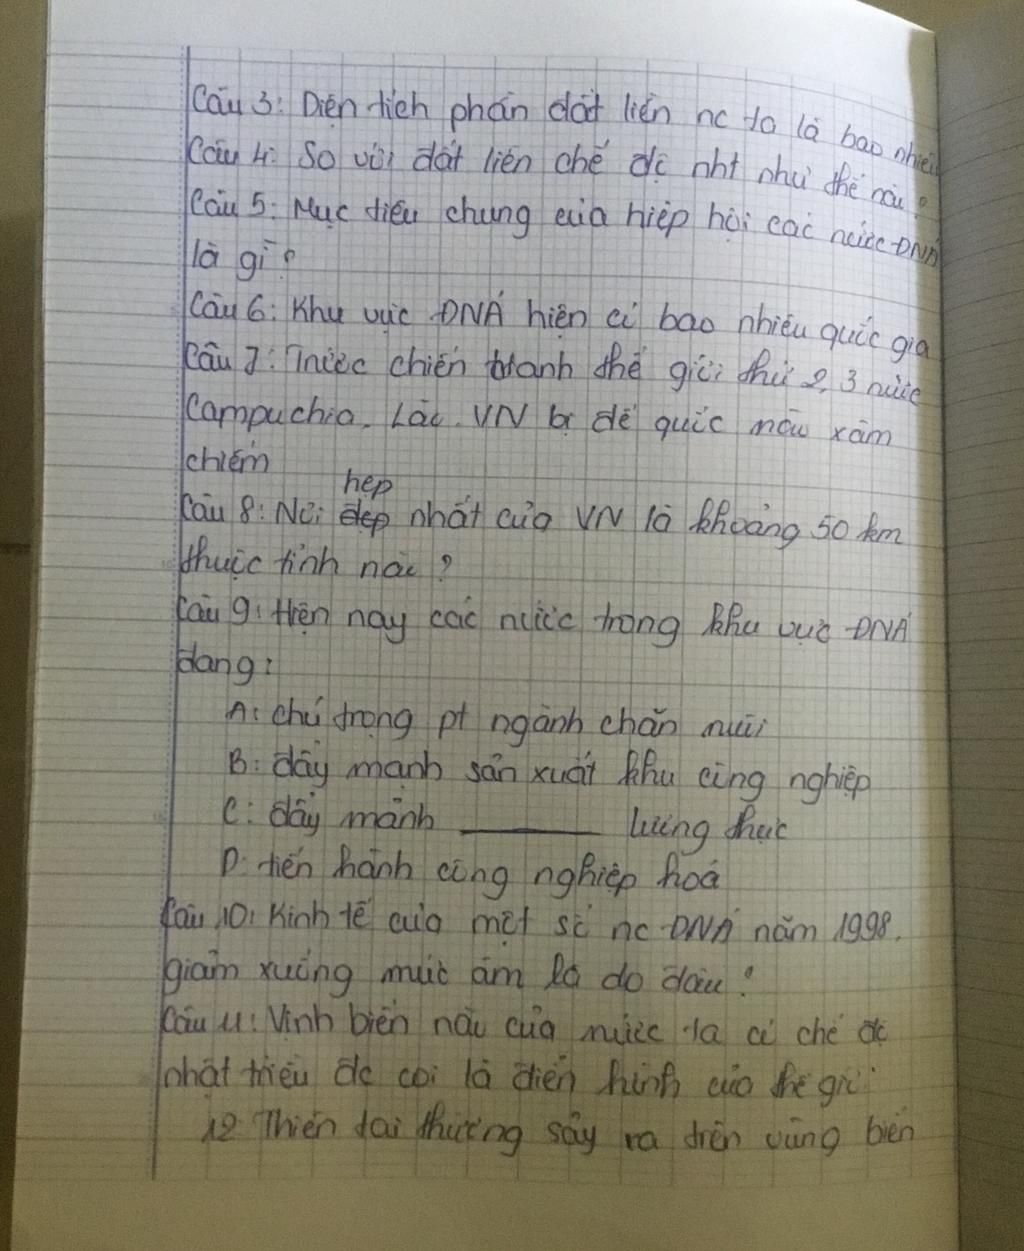 Câu 3: Diện tích phần đất liền nc ta là bao nhiêu
Câu 4: So với đất liền chế độ nht như thế nào?
Câu 5: Mục tiêu chung của hiệp hội các nước ĐNÁ
là gì?
Câu 6: Khu vực ĐNÁ hiện có bao nhiêu quốc gia
Câu 7: Trước chiến tranh thế giới thứ 2, 3 nước
Campuchia, Lào, VN bị đế quốc nào xâm
chiếm
hẹp
Câu 8: Nơi đẹp nhất của VN là khoảng 50 km
thuộc tỉnh nào?
Câu 9: Hiện nay các nước trong khu vực ĐNÁ
đang:
A: chú trọng pt ngành chăn nuôi
B: đẩy mạnh sản xuất khu công nghiệp
C: đẩy mạnh ______ lương thực
D: tiến hành công nghiệp hoá
Câu 10: Kinh tế của một số nc ĐNÁ năm 1998.
giảm xuống mức âm là do đâu?
Câu 11: Vịnh biển nào của nước ta có chế độ
nhật triều đc coi là điển hình của thế giới
12 Thiên tai thường sảy ra trên vùng biển